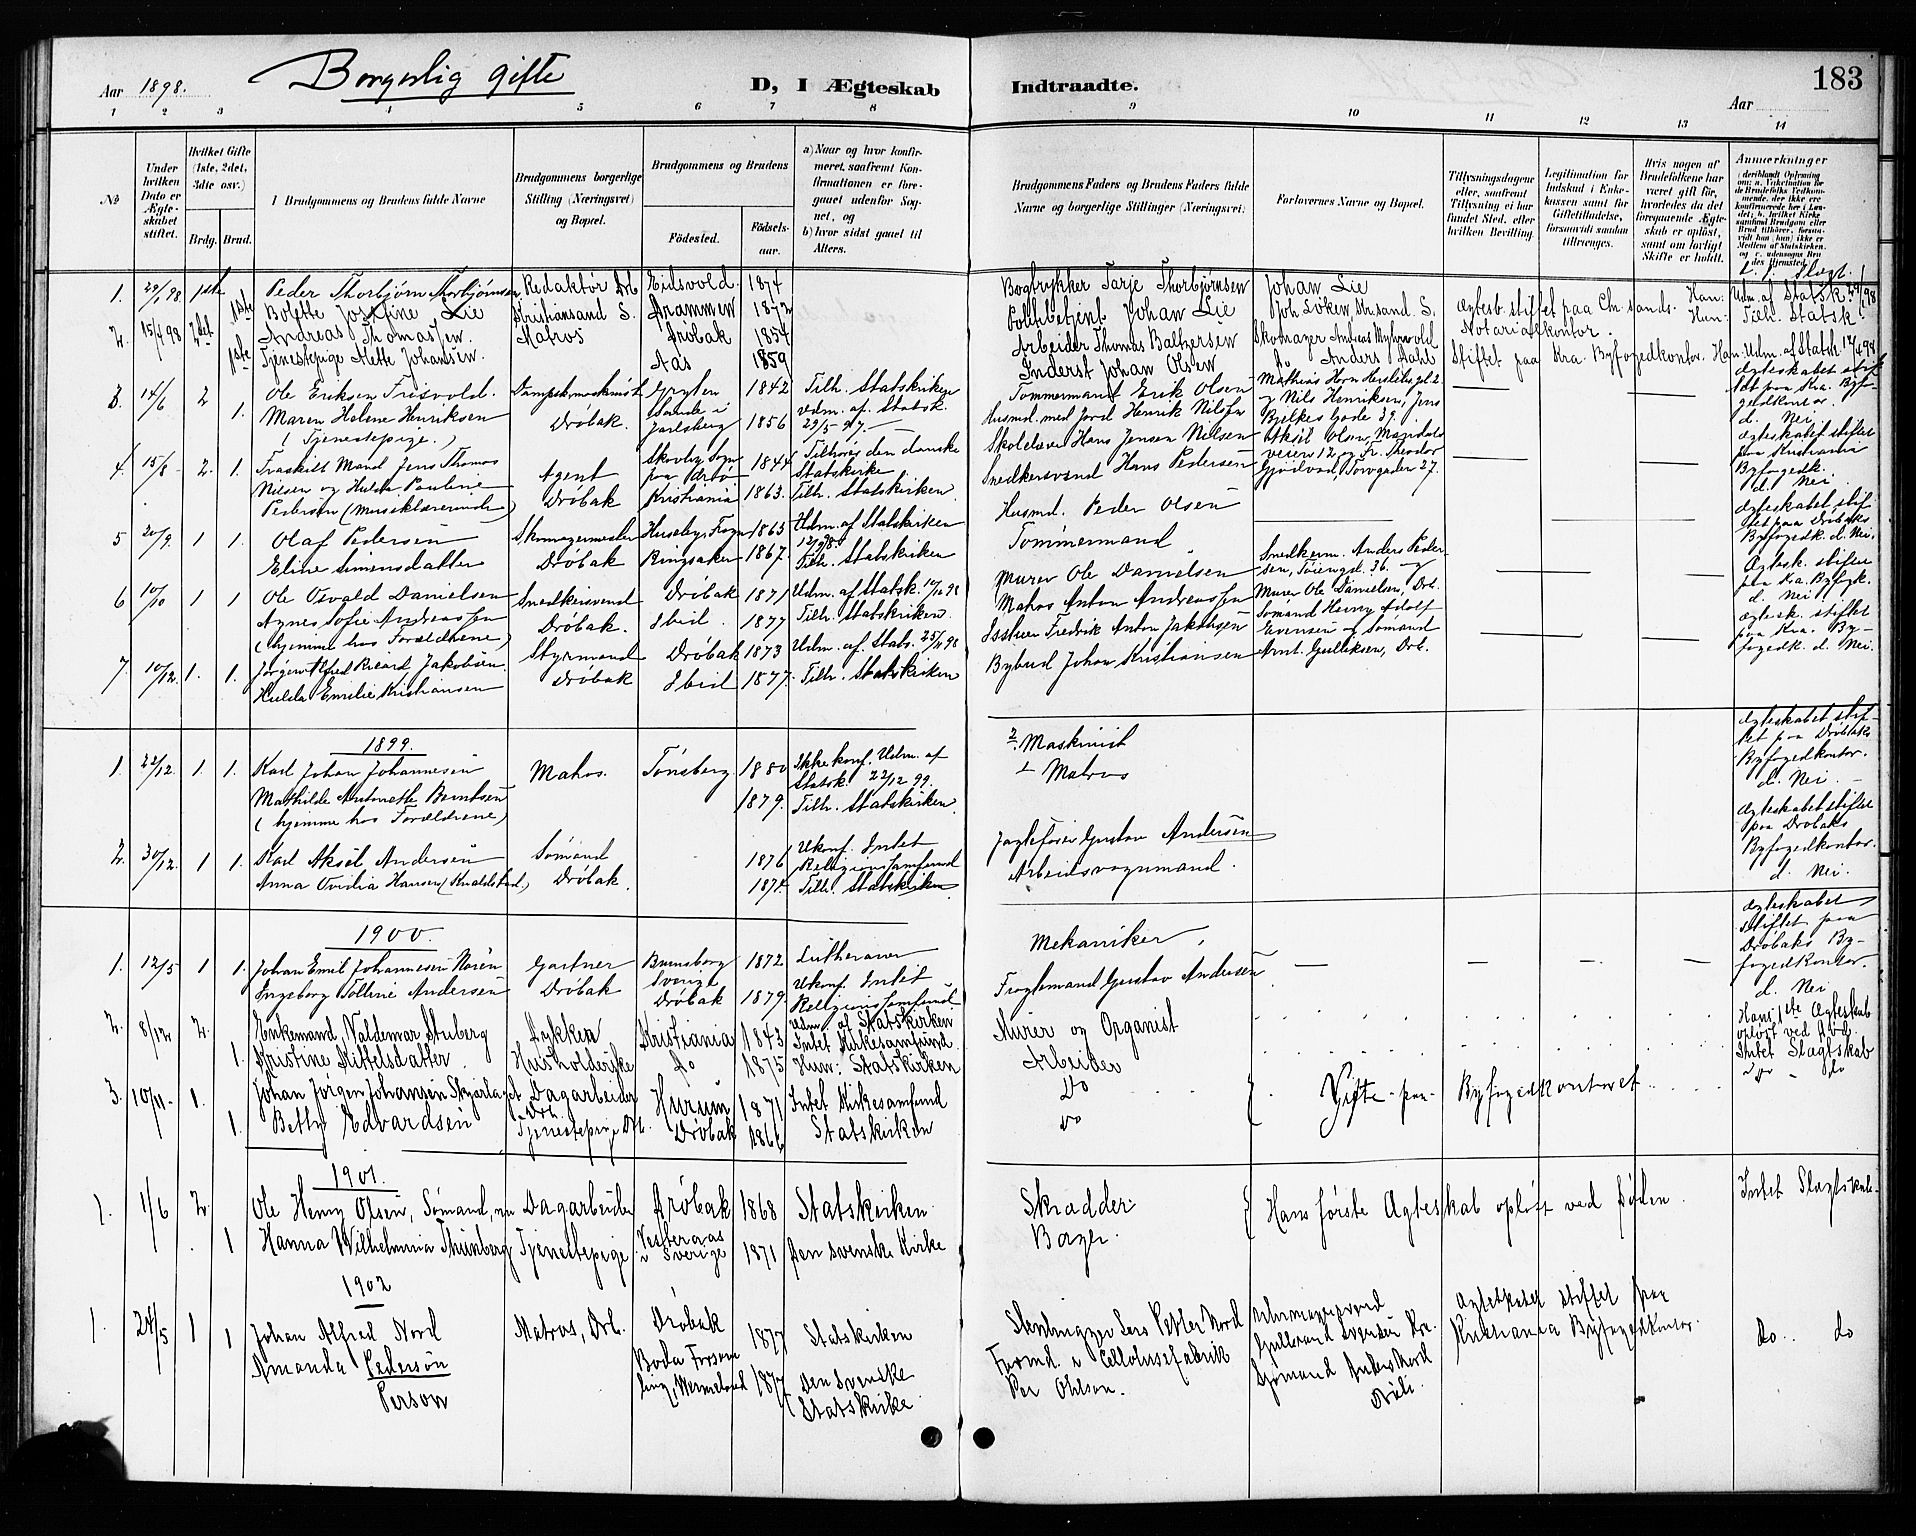 Aar 1898. Borgerlig gifte D, I Ægteskab Indtraadte. Aar 183
1 2 3 4 5 6 7 8 9 10 11 12 13 14
No
Under hvilken Dato er Ægteskabet stiftet.
Hvilket Gifte (1ste, 2det, 3die osv.)
Brdg. Brud.
Brudgommens og Brudens fulde Navne
Brudgommens borgerlige Stilling (Næringsvei) og Bopæl.
Brudgommens og Brudens
Fødested. Fødsels-aar.
a) Naar og hvor konfirmeret, saafremt Konfirmationen er foregaaet udenfor Sognet, og
b) hvor sidst gaaet til Alters.
Brudgommens Faders og Brudens Faders fulde Navne og borgerlige Stillinger (Næringsvei)
Forlovernes Navne og Bopæl.
Tillysningsdagene eller, saafremt Tillysning ei har fundet Sted, efter hvilken Bevilling.
Legitimation for Indskud i Enkekassen samt for Giftetilladelse, forsaavidt saadan tiltrænges.
Hvis nogen af Brudefolkene har været gift før, hvorledes da det foregaaende Ægteskab er opløst, samt om lovligt Skifte er holdt.
Anmærkninger
1. 29/1 98 1ste Peder Thorbjørn Thorbjørnsen Redaktør Drb Eidsvold. 1874 Bogtrykker Tarje Thorbjørnsen Johan Lie
1ste Bolette Josefine Lie Kristiansand S. Drammen 1872 Politibetjent Johan Lie Joh Löken, Kr.sand. S. Ægtesk. stiftet paa Chr.sands Notarialkontor. Han: Udm. af Statsk Hun: Tilh. Statsk
2. 15/4 98 2det Andreas Thomassen. Matros Drøbak 1854 Arbeider Thomas Baltzersen Skomager Andreas Myhrvold
1ste Tjenestepige Mette Johansen. Aas 1859 Inderst Johan Olsen do Anders Dahl Stiftet paa Kra. Byfogedkontor. Han: Udm. af Statsk 14/4 98
3. 14/6 2 Ole Eriksen Trisvold. Dampskibsmaskinist 1842 Tilh. Statskirken Tømmermand Erik Olsen
1. Maren Helene Henriksen Drøbak. Sande i Jarlsberg 1856 Udm. af Statsk. 29/5 97. Husmd. med Jord Henrik Nilsen og Nils Henriksen, Jens Bjelkes Gade 39.
(Tjenestepige.)
Ægteskabet stiftet paa Kra. Byfogedkontor. d. Nei
4. 15/8 2. 1. Fraskilt Mand Jens Thomas Nilsen og Hulda Pauline Pedersen Agent Drøbak 1844 Kristiania 1863. Tilhører den danske Statskirke Tilh. Statskirken.
Skolelærer Hans Jensen Nielsen Snedkersvend Hans Pedersen Aksel Olsen
Ægteskabet stiftet paa Kristiania Byfogedk. d. Nei
5 20/9. 1 1. Olaf Pedersen Skomagermester Huseby, Frogn 1865 Udm. af Statskirken Husmd. Peder Olsen
Eline Simensdatter Drøbak Ringsaker 1867. Tilh. Statskirken Tømmermand
Ægteskabet stiftet paa Drøbaks Byfogedk. d. Nei.
6 10/10 1 1 Ole Osvald Danielsen Snedkersvend Drøbak 1871 Udm. af Statsk. Murer Ole Danielsen
Agnes Sofie Andreassen Drøbak. Ibid. 1877 Tilh. Statskirken. Matros Anton Andreassen
(hjemme hos Forældrene)
Snedkerm. Anders Pedersen, Tøiengd. 36. og Murer Ole Danielsen, Drb.
Ægtesk. stiftet paa Kra. Byfogk. d. Nei
7. 10/12. 1. 1. Jørgen Alfred Rikard Jakobsen Styrmand Drøbak 1873 Udm. af Stats. 25/11 98 Fredrik Anton Jakobsen
Hulda Emilie Kristiansen Drøbak Ibid 1877. Tilh. Statskirken Bybud Johan Kristiansen
Sømand Henry Adolf Evensen og Sømand Arnt Gulliksen, Drb.
Ægtesk. stiftet paa Kra. Byfogedk. d. Nei.
1899.
1. 22/12 1. 1. Karl Johan Johannesen Matros. Tønsberg 1880 Ikke konf. Udm. af Statsk. 22/12 99. Maskinist
Mathilde Antonette Berntsen 1879. Tilh. Statskirken Matros
(hjemme hos Forældrene)
Ægteskabet stiftet paa Drøbaks Byfogedkontor. d. Nei.
2. 30/12. 1 1. Karl Aksel Andersen Sømand 1876 Ukonf. Intet Religionssamfund Gustav Andersen
Anna Ovidia Hansen Drøbak. 1874 Tilh. Statskirken Arbeidsvognmand.
Ægteskabet stiftet paa Drøbaks Byfogedkontor. d. Nei.
1900.
1. 12/5 1 1. Johan Emil Johannesen Norén Gartner Sverige 1872 Lutheraner Mekaniker,
Ingeborg Tolline Andersen Drøbak Drøbak 1879. Ukonf. Intet Religionssamfund Gustav Andersen
Ægteskabet stiftet paa Drøbaks Byfogedkontor. d. Nei
2. 8/12 2. Enkemand, Valdemar Stuberg Kristiania 1843 Udm af Statskirken Intet Kirkesamfund Murer og Organist Hans 1ste Ægteskab opløst ved Død.
1. Kristine Kittelsdatter Husholderske do 1875 Hun: Statskirken Arbeider Intet Slægtskab
3. 10/11 1. Johan Jørgen Johansen Dagarbeider Drb. Hurum 1871 Intet Kirkesamfund Do Gifte paa Byfogedkontoret do
1. Betty Edvardsen Tjenestepige Drb. Drøbak 1866 Statskirken do
1901.
1. 1/6 2. Ole Henry Olsen, Sømand, nu Dagarbeider Drøbak 1868 Statskirken Skrædder Hans første Ægteskab opløst ved Døden. Intet Slægtskab
1 Hanna Wilhelmina Thunberg Tjenestepige Vesteraas i Sverige 1871 Den svenske Kirke
1902
1. 24/5 1 Johan Alfred Nord Matros, Drb. Drøbak 1877 Statskirken Stenhugger Lars Petter Nord Ægteskabet stiftet paa Kristiania Byfogedkontor. Do do
1 Amanda Pedersøn Person 1877 Den Svenske Statskirke Formd. i Cellulosefabrik Per Ohlson. Sjømand Anders Nord